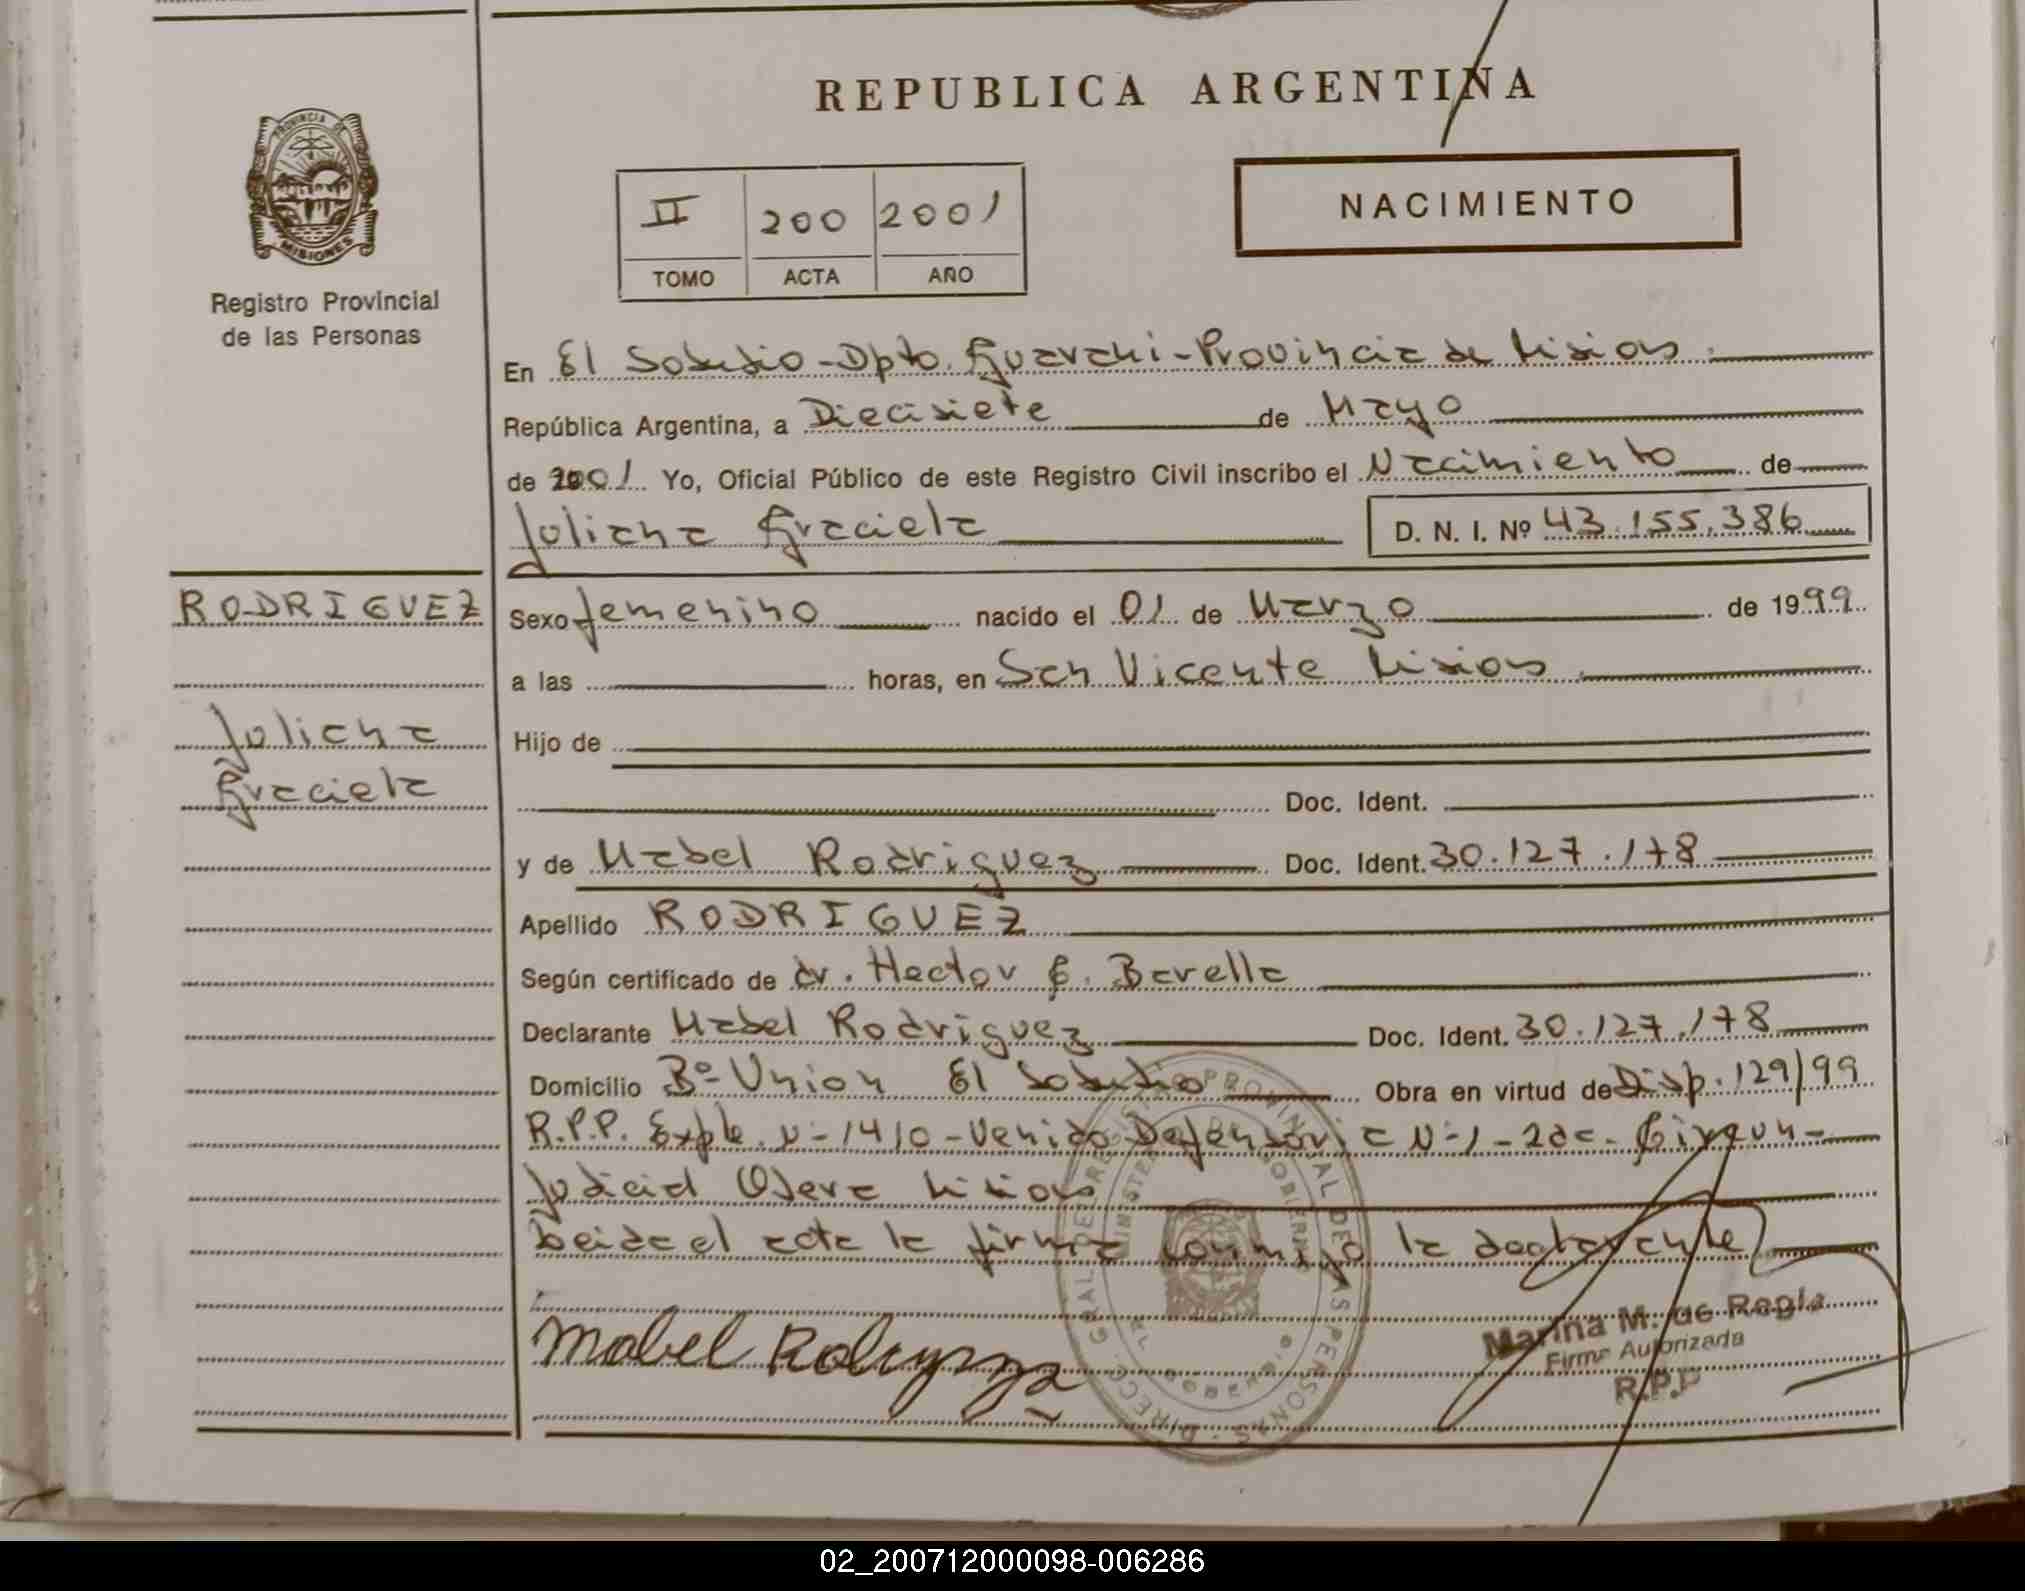 REPUBLICA ARGENTINA
PROVINCIA DE
MISIONES
Registro Provincial
de las Personas
II 200 2001
TOMO ACTA AÑO
NACIMIENTO
En El Soberbio - Dpto. Guarani - Provincia de Misiones
República Argentina, a Diecisiete de Mayo
de 2001 Yo, Oficial Público de este Registro Civil inscribo el Nacimiento de
Juliana Graciela D. N. I. Nº 43.155.386
RODRIGUEZ
Juliana
Graciela
Sexo femenino nacido el 01 de Marzo de 1999
a las horas, en San Vicente Misiones
Hijo de
Doc. Ident.
y de Mabel Rodriguez Doc. Ident. 30.127.178
Apellido RODRIGUEZ
Según certificado de dr. Hector Barella
Declarante Mabel Rodriguez Doc. Ident. 30.127.178
Domicilio Bº Union El Soberbio Obra en virtud de Disp. 129/99
R.P.P. Expte. Nº 1410 - Venido Defensoria Nº 1 - 2da. Circun-
Judicial Obera Misiones
Leida el acta la firma conmigo la declarante
Mabel Rodriguez
Marina M. de Regla
Firma Autorizada
R.P.P
02_200712000098-006286